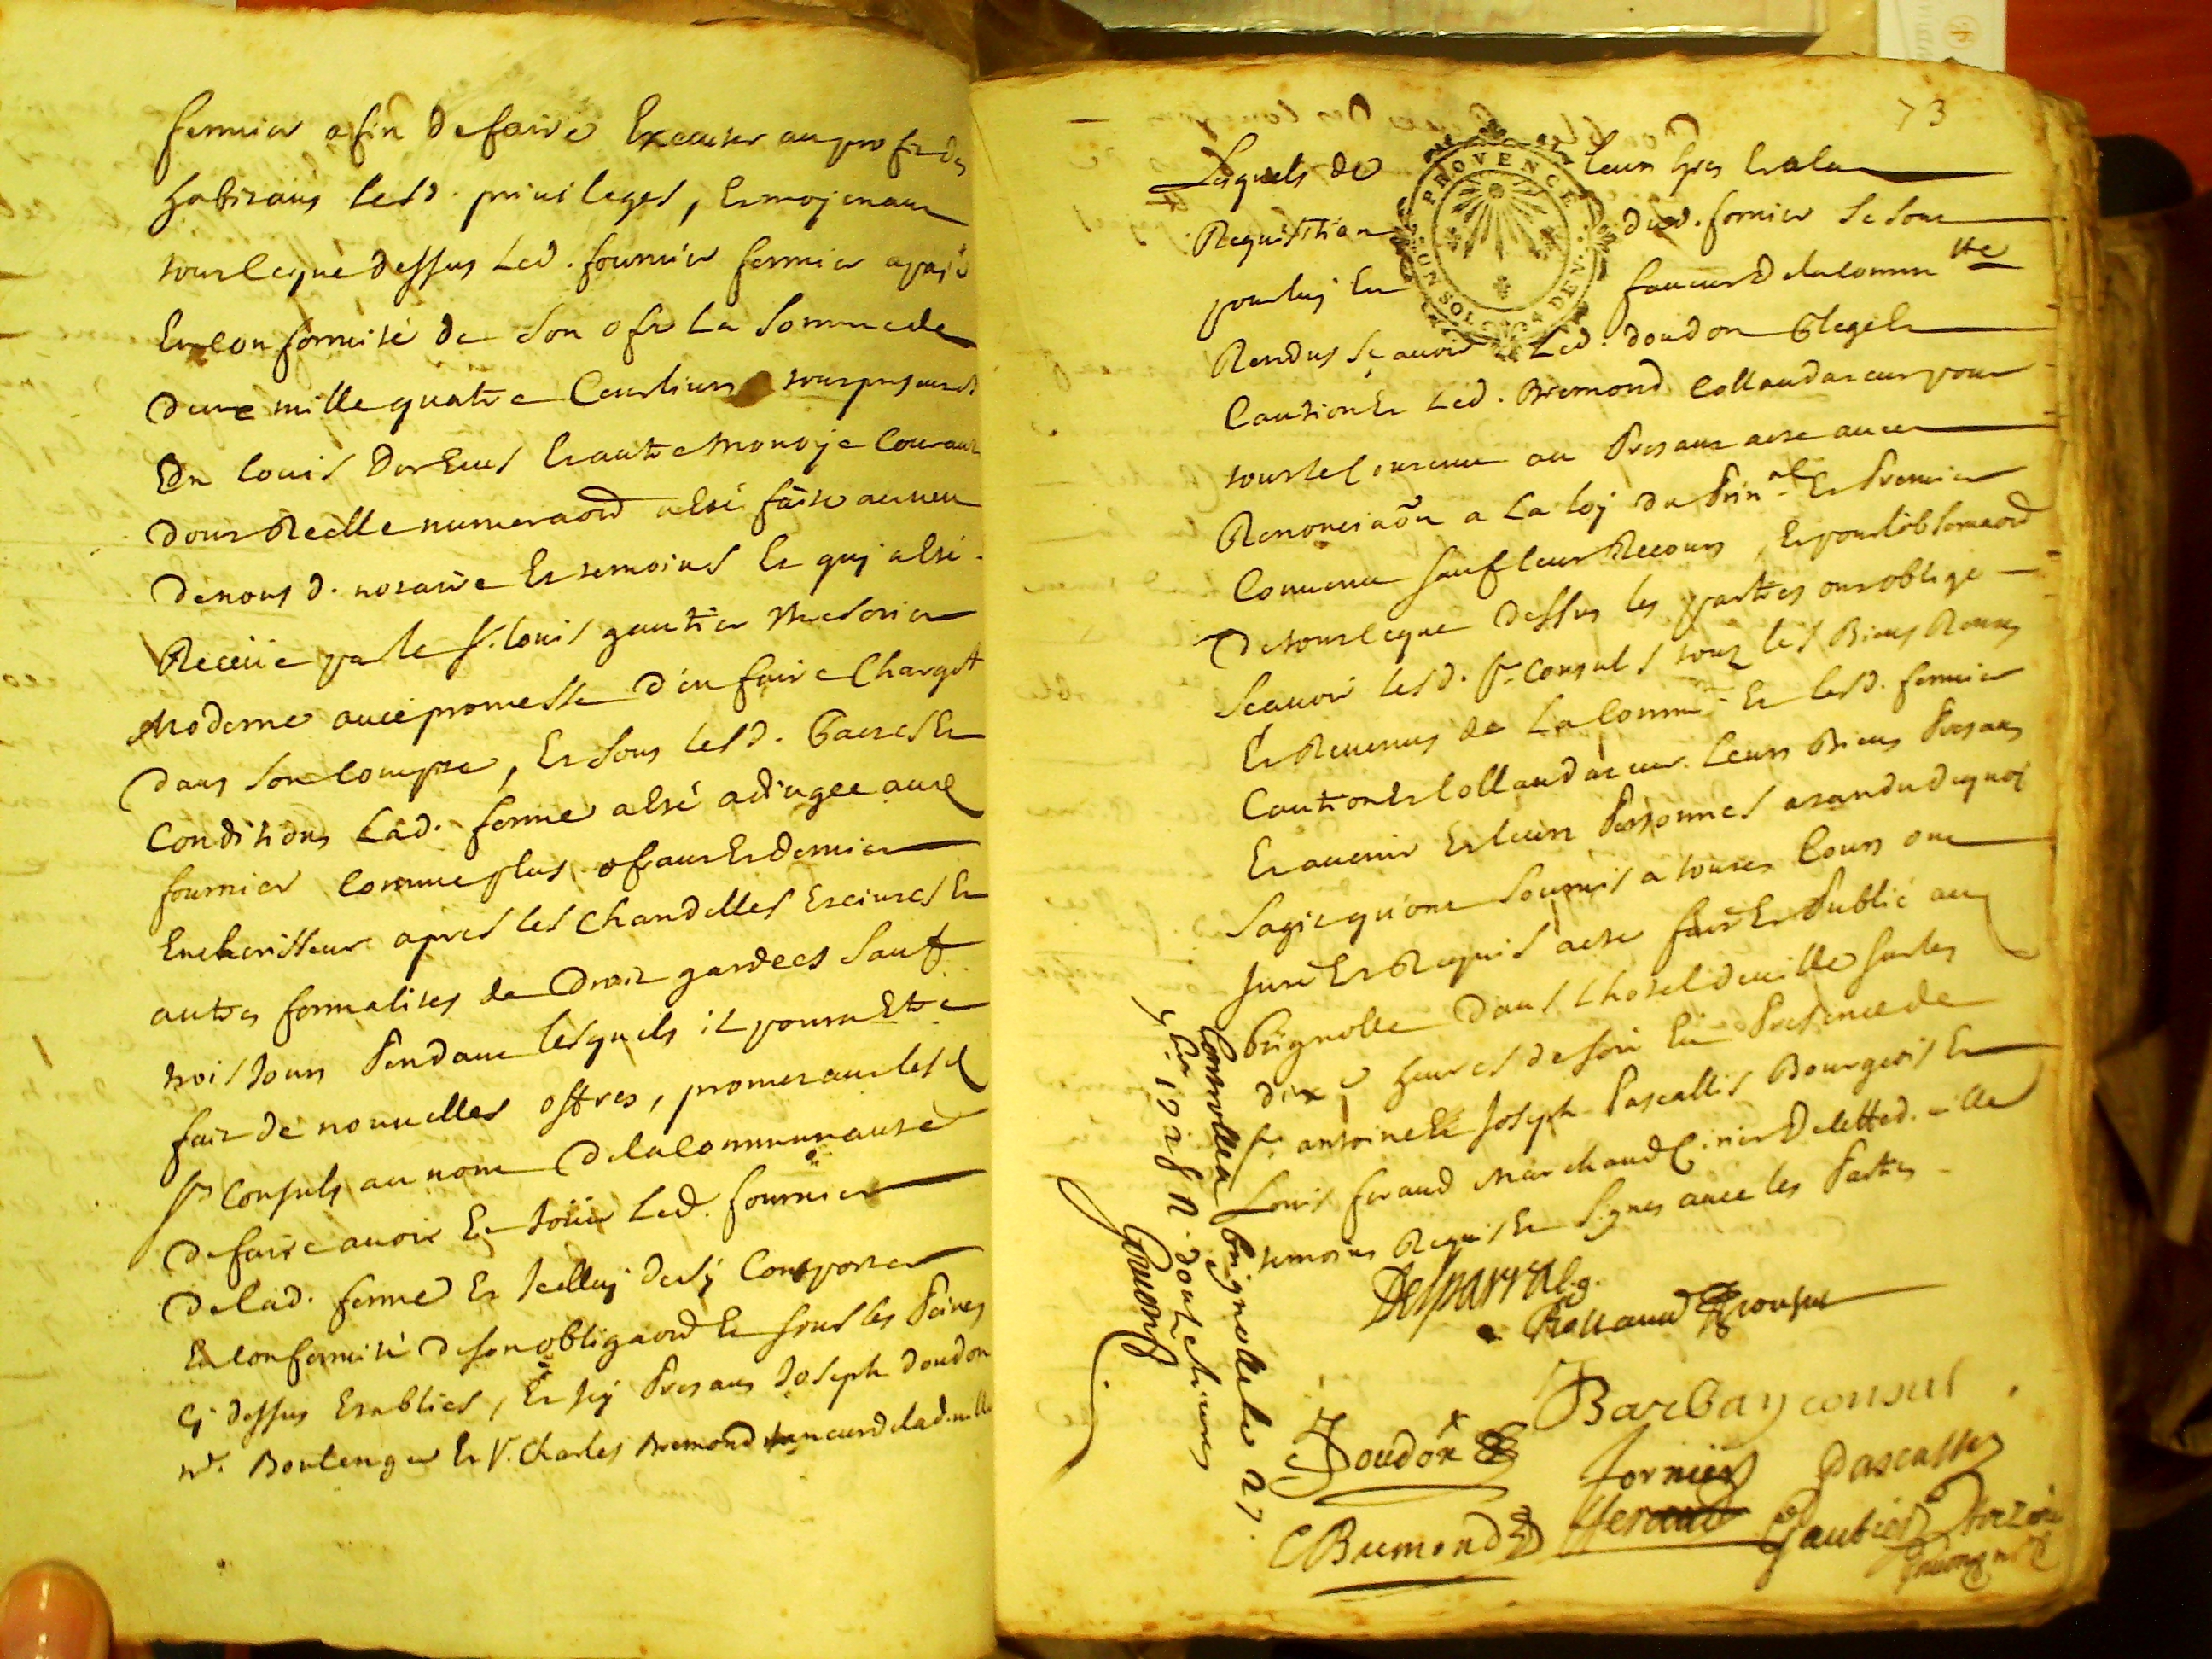 fermier afin de faire Executer au profit des
habitans lesd. privileges, Et moyenant
tout ce que dessus Led. fournier fermier a payé
En conformité de son ofre La somme de
deux mille quatre Cent livres tout presentem.
En louis d'or Ecus Et autre monoye Courant
dont Reelle numeraõn a Esté faite au veu
de nous d. notaire Et temoins Et quj a Esté
Receüe par le sr. louis gautier tresorier
Moderne avec promesse d'en faire Charget
dans son compte, Et sous lesd. Pactes Et
Conditions Lad. ferme a Esté adjugee aud
fournier comme plus ofrant Et dernier
Encherisseur apres les chandelles Eteintes Et
autres formalites de Droit gardees sauf
trois Jours Pendant lesquels il poura Etre
fait de nouvelles offres, prometant lesd
srs Consuls au nom de la Communauté
de faire avoir Et Joüir Led. fournier
de lad. ferme Et Icelluy de s'y Comporter
En Conformité de son obligaõn Et sous les Peines
cy dessus Etablies, Et icy Presans Joseph doudon
me. Boulenger Et sr. Charles Bremond de lad. ville
73
Lesquels de leur gres Et a la
Requisition dud. fornier se sont
pour luy En faveur de la commte
Rendus sçavoir Led. doudon Plege Et
Caution Et Led. Bremond Collaudateur pour
tout le Contenu au Presant acte avec
Renonciaõn a La loy du Prinal Et Premier
Convenu sauf leur Recours, Et pour l'observaõn
de tout ce que dessus les parties ont obligé
Scavoir lesd. srs Consuls tous les Biens Rentes
Et Revenus de La Commté Et lesd. fermier
Caution Et Collaudateur leurs Biens Presans
Et avenir Et leurs Personnes atandu de quoy
s'agit qu'ont soumis a toutes Cours ont
Juré Et Requis acte fait Et Publié au
Brignolle dans L'hotel de ville sur les
dix heures de soir En Presence de
sr. antoine Et Joseph Pascallis Bourgeois Et
Louis feraud Marchand de cetted. ville
temoins Requis Et signes avec les Parties
Desparra l.g.
Rollaud consul
Barbay consul
Doudon
fornier
Pascallis
C Bremond
feraud
Gautier Trezorie
Controllé a Brignolle le 27.
1728 R. douze livres